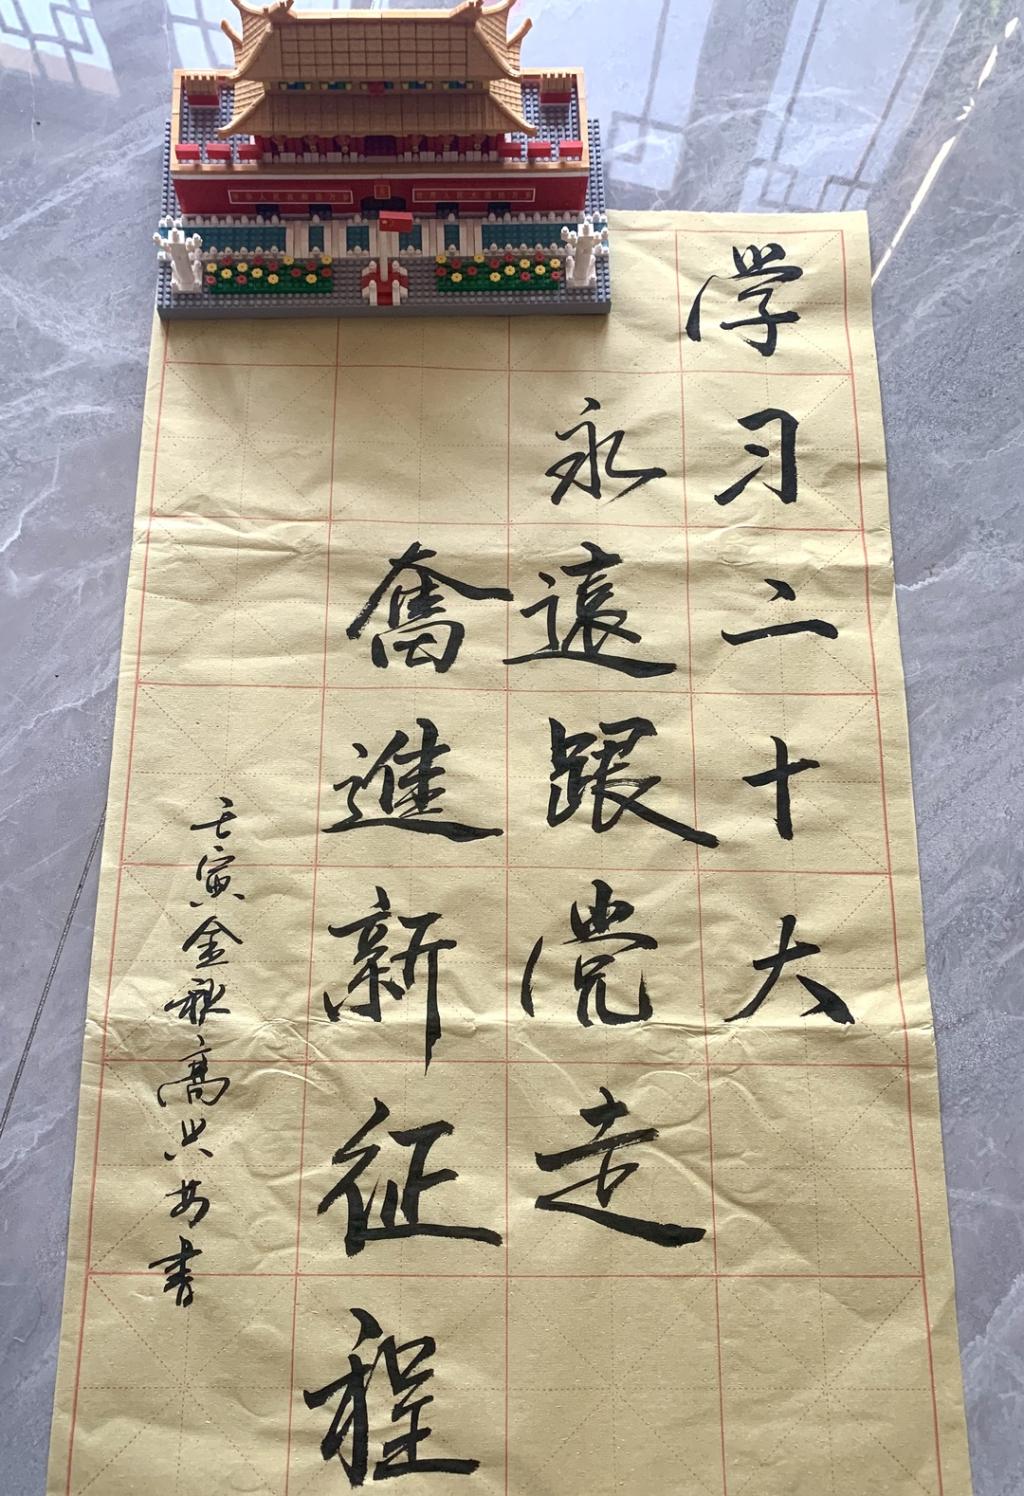 学习二十大
永遠跟党走
奮進新征程
壬寅金秋高兴安书